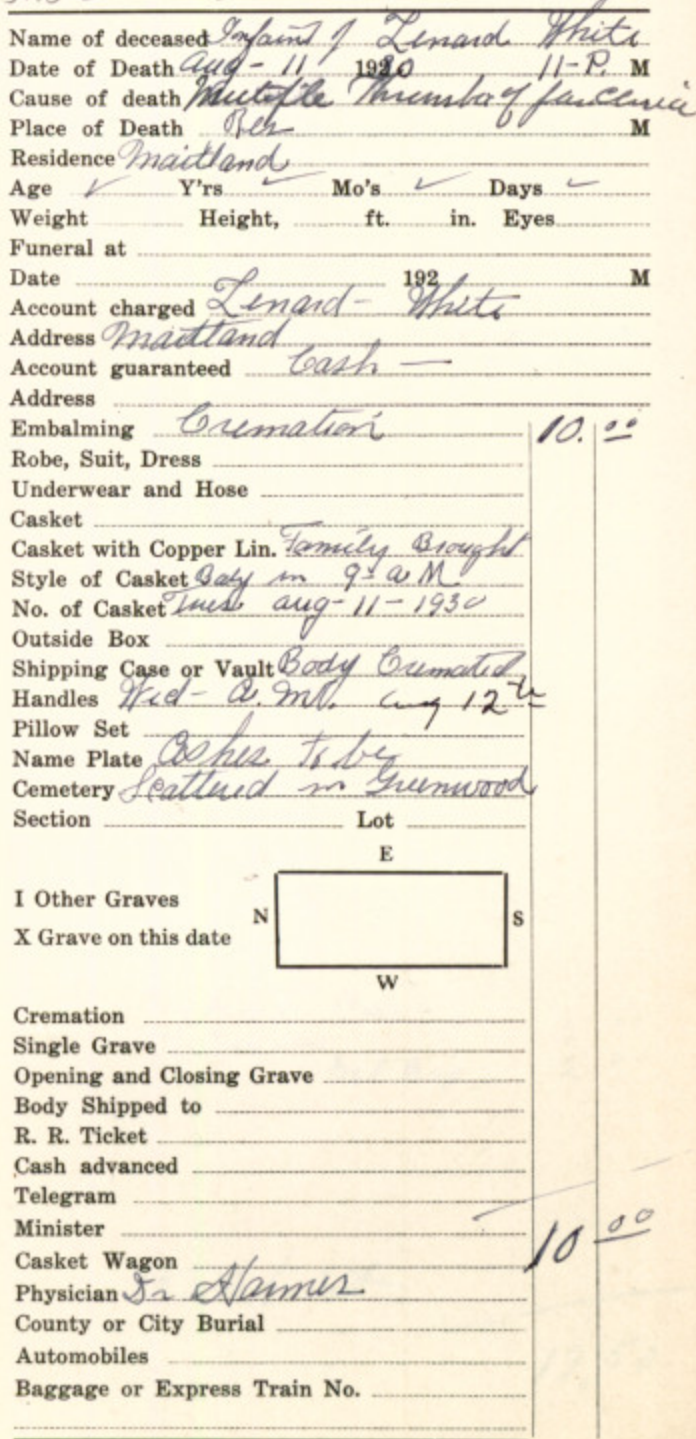 Name of deceased Infant of Lenard White
Date of Death Aug - 11 1930 11 - P. M
Cause of death Multiple Thrombo of
Place of Death Res M
Residence Maitland
Age ✓ Y'rs ✓ Mo's ✓ Days ✓
Weight Height, ft. in. Eyes
Funeral at
Date 192 M
Account charged Lenard - White
Address Maitland
Account guaranteed Cash —
Address
Embalming Cremation 10. 00
Robe, Suit, Dress
Underwear and Hose
Casket
Casket with Copper Lin. Family Brought
Style of Casket Body in 9 - a M
No. of Casket Tues aug - 11 - 1930
Outside Box
Shipping Case or Vault Body Cremated
Handles Wed - A.M. Aug 12th
Pillow Set
Name Plate Ashes to be
Cemetery Scattered in Greenwood
Section Lot
E
I Other Graves
N S
X Grave on this date
W
Cremation
Single Grave
Opening and Closing Grave
Body Shipped to
R. R. Ticket
Cash advanced
Telegram
Minister 10 00
Casket Wagon
Physician Dr
County or City Burial
Automobiles
Baggage or Express Train No.